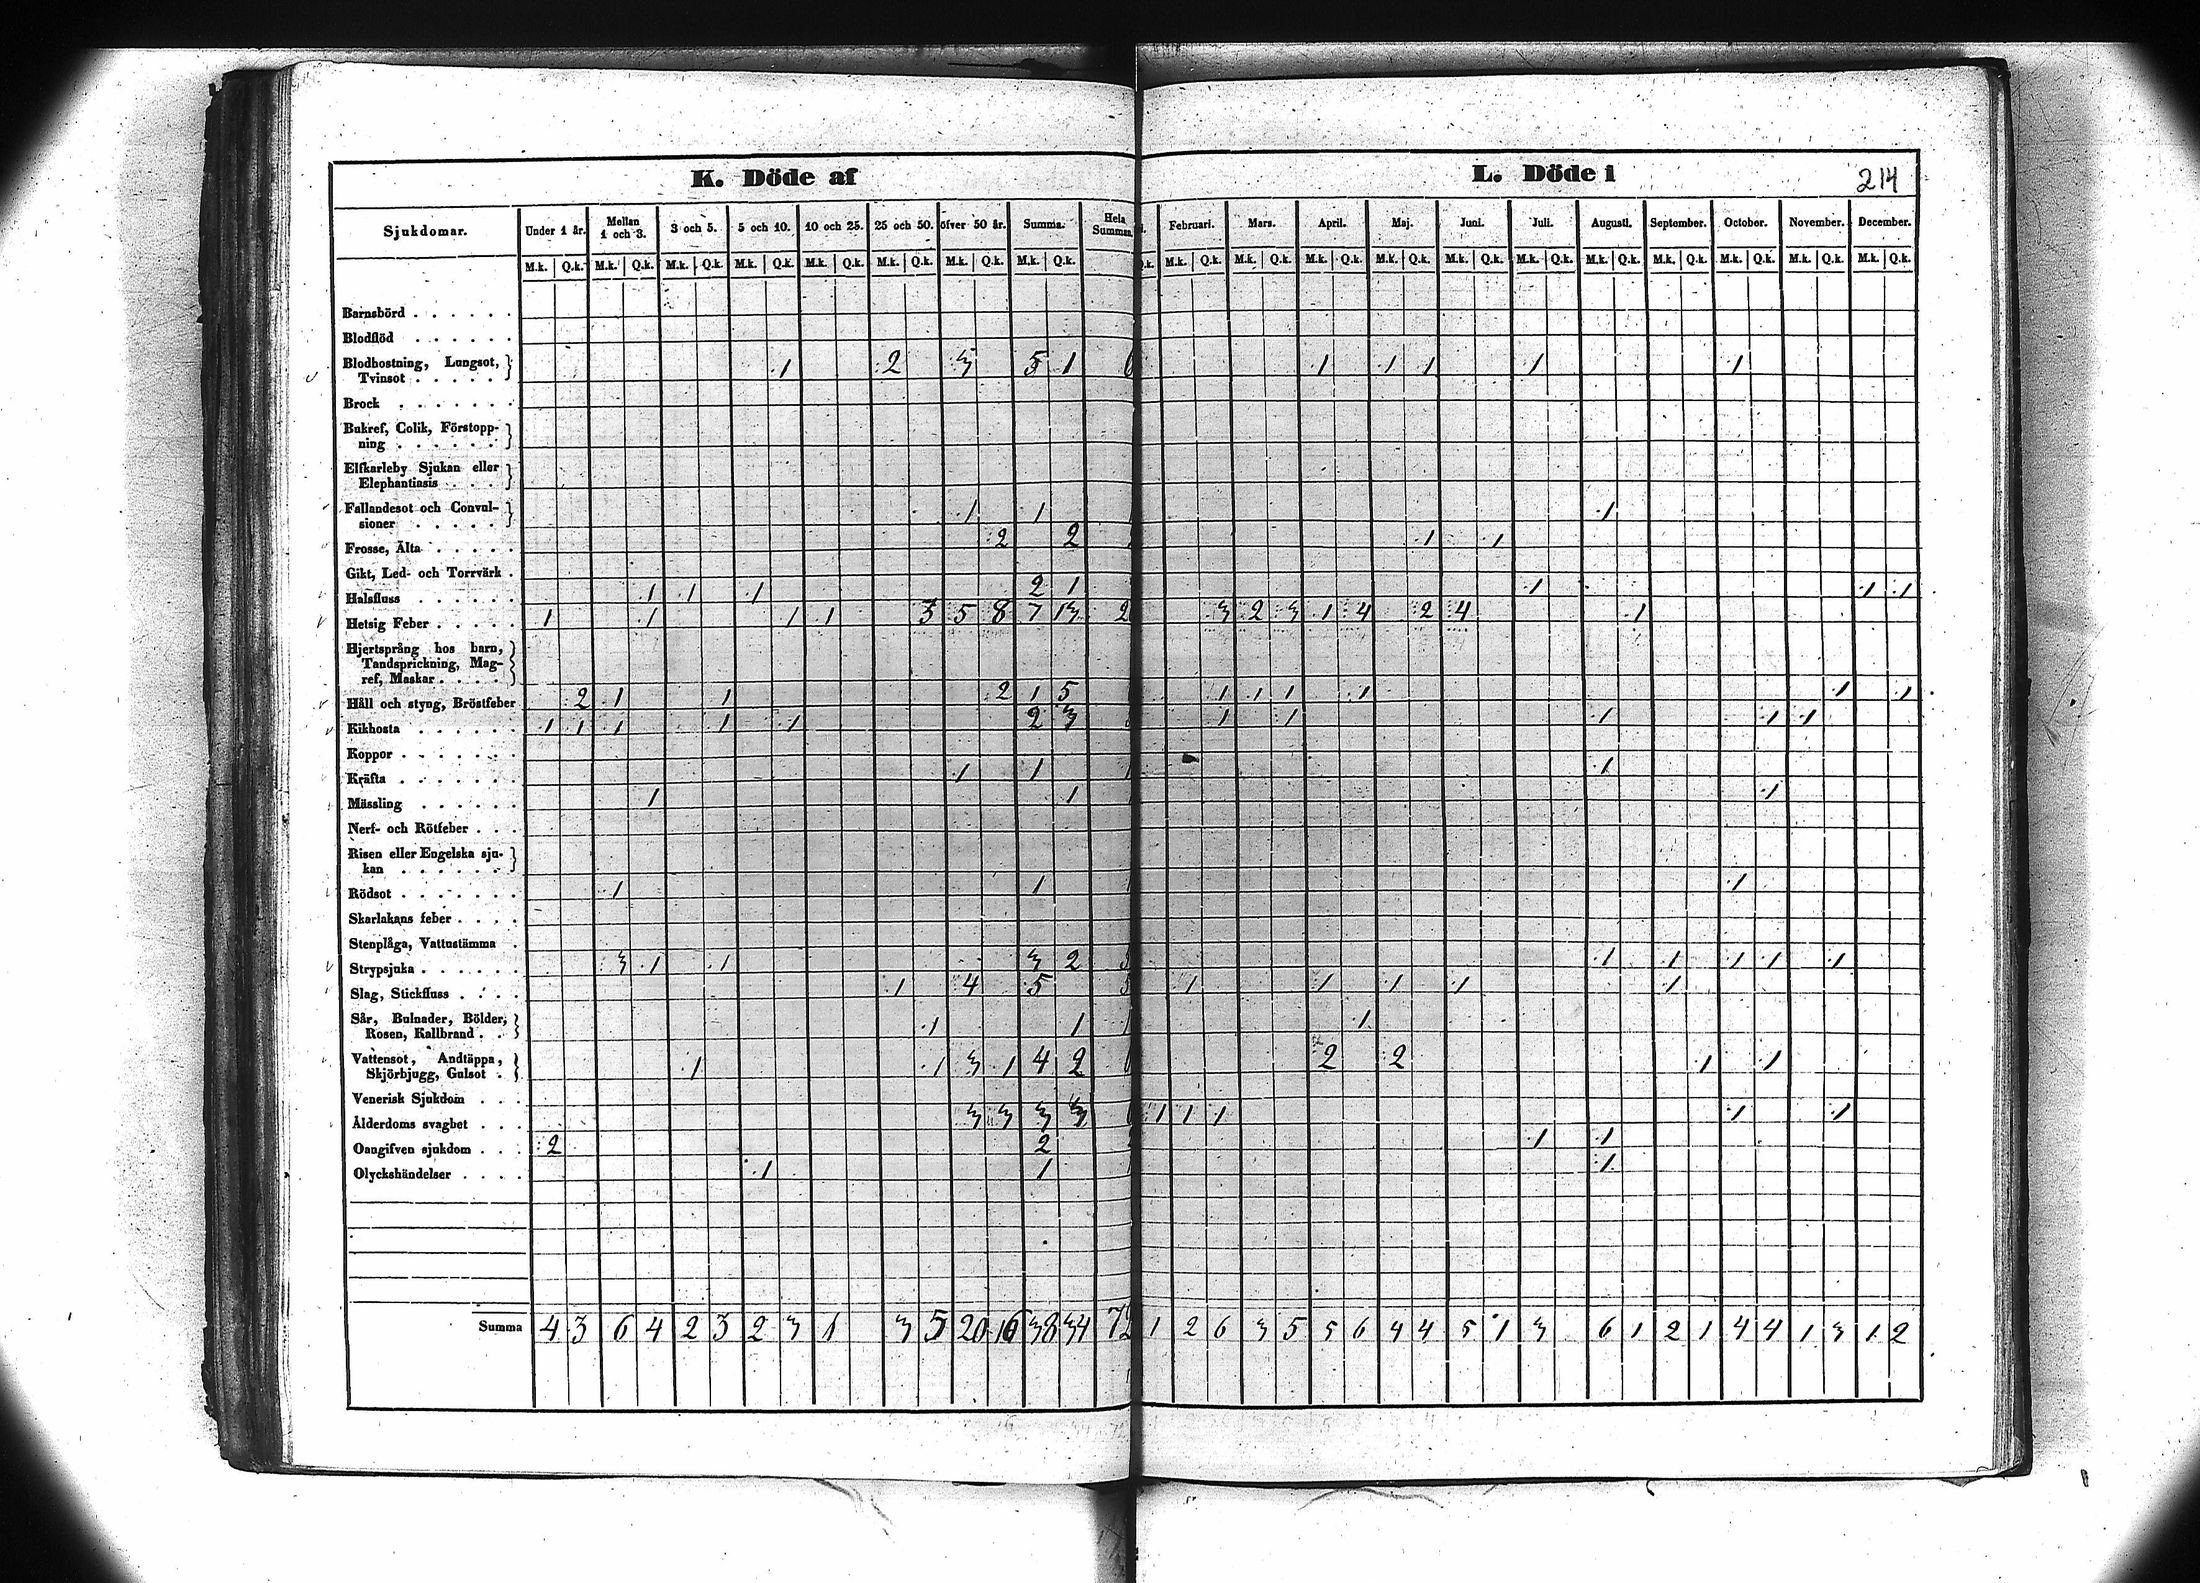 K. Döde af L. Döde i 214
Sjukdomar. Under 1 år. Mellan 1 och 3. 3 och 5. 5 och 10. 10 och 25. 25 och 50. öfver 50 år. Summa. Hela Summan. Februari. Mars. April. Maj. Juni. Juli. Augusti. September. October. November. December.
M.k. Q.k. M.k. Q.k. M.k. Q.k. M.k. Q.k. M.k. Q.k. M.k. Q.k. M.k. Q.k. M.k. Q.k. Q.k. M.k. Q.k. M.k. Q.k. M.k. Q.k. M.k. Q.k. M.k. Q.k. M.k. Q.k. M.k. Q.k. M.k. Q.k. M.k. Q.k. M.k. Q.k. M.k. Q.k.
Barnsbörd . . . . . .
Blodflöd . . . . . .
Blodhostning, Lungsot,
Tvinsot . . . . . 1 2 3 5 1 6 1 1 1 1 1
Brock . . . . . . .
Bukref, Colik, Förstopp-
ning . . . . . .
Elfkarleby Sjukan eller
Elephantiasis . . .
Fallandesot och Convul-
sioner . . . . . 1 1 1 1
Frosse, Älta . . . . . 2 2 1 1
Gikt, Led- och Torrvärk .
Halsfluss . . . . . . 1 1 1 2 1 1 1 1
Hetsig Feber . . . . . 1 1 1 1 3 5 8 7 13 2 3 2 3 1 4 2 4 1
Hjertsprång hos barn,
Tandsprickning, Mag-
ref, Maskar . . . .
Håll och styng, Bröstfeber 2 1 1 2 1 5 1 1 1 1 1 1
Kikhosta . . . . . . 1 1 1 1 1 2 3 1 1 1 1 1
Koppor . . . . . .
Kräfta . . . . . . . 1 1 1 1
Mässling . . . . . . 1 1 1 1
Nerf- och Rötfeber . . .
Risen eller Engelska sju-
kan . . . . . .
Rödsot . . . . . . . 1 1 1 1
Skarlakans feber . . . .
Stenplåga, Vattustämma .
Strypsjuka . . . . . . 3 1 1 3 2 5 1 1 1 1 1
Slag, Stickfluss . . . . 1 4 5 5 1 1 1 1 1
Sår, Bulnader, Bölder,
Rosen, Kallbrand . . 1 1 1 1
Vattensot, Andtäppa,
Skjörbjugg, Gulsot . 1 1 3 1 4 2 6 2 2 1 1
Venerisk Sjukdom . . .
Ålderdoms svaghet . . . 3 3 3 3 6 1 1 1 1 1
Oangifven sjukdom . . . 2 2 1 1
Olyckshändelser . . . . 1 1 1 1
Summa 4 3 6 4 2 3 2 3 1 3 5 20 16 38 34 72 1 2 6 3 5 5 6 4 4 5 1 3 6 1 2 1 4 4 1 3 1 2